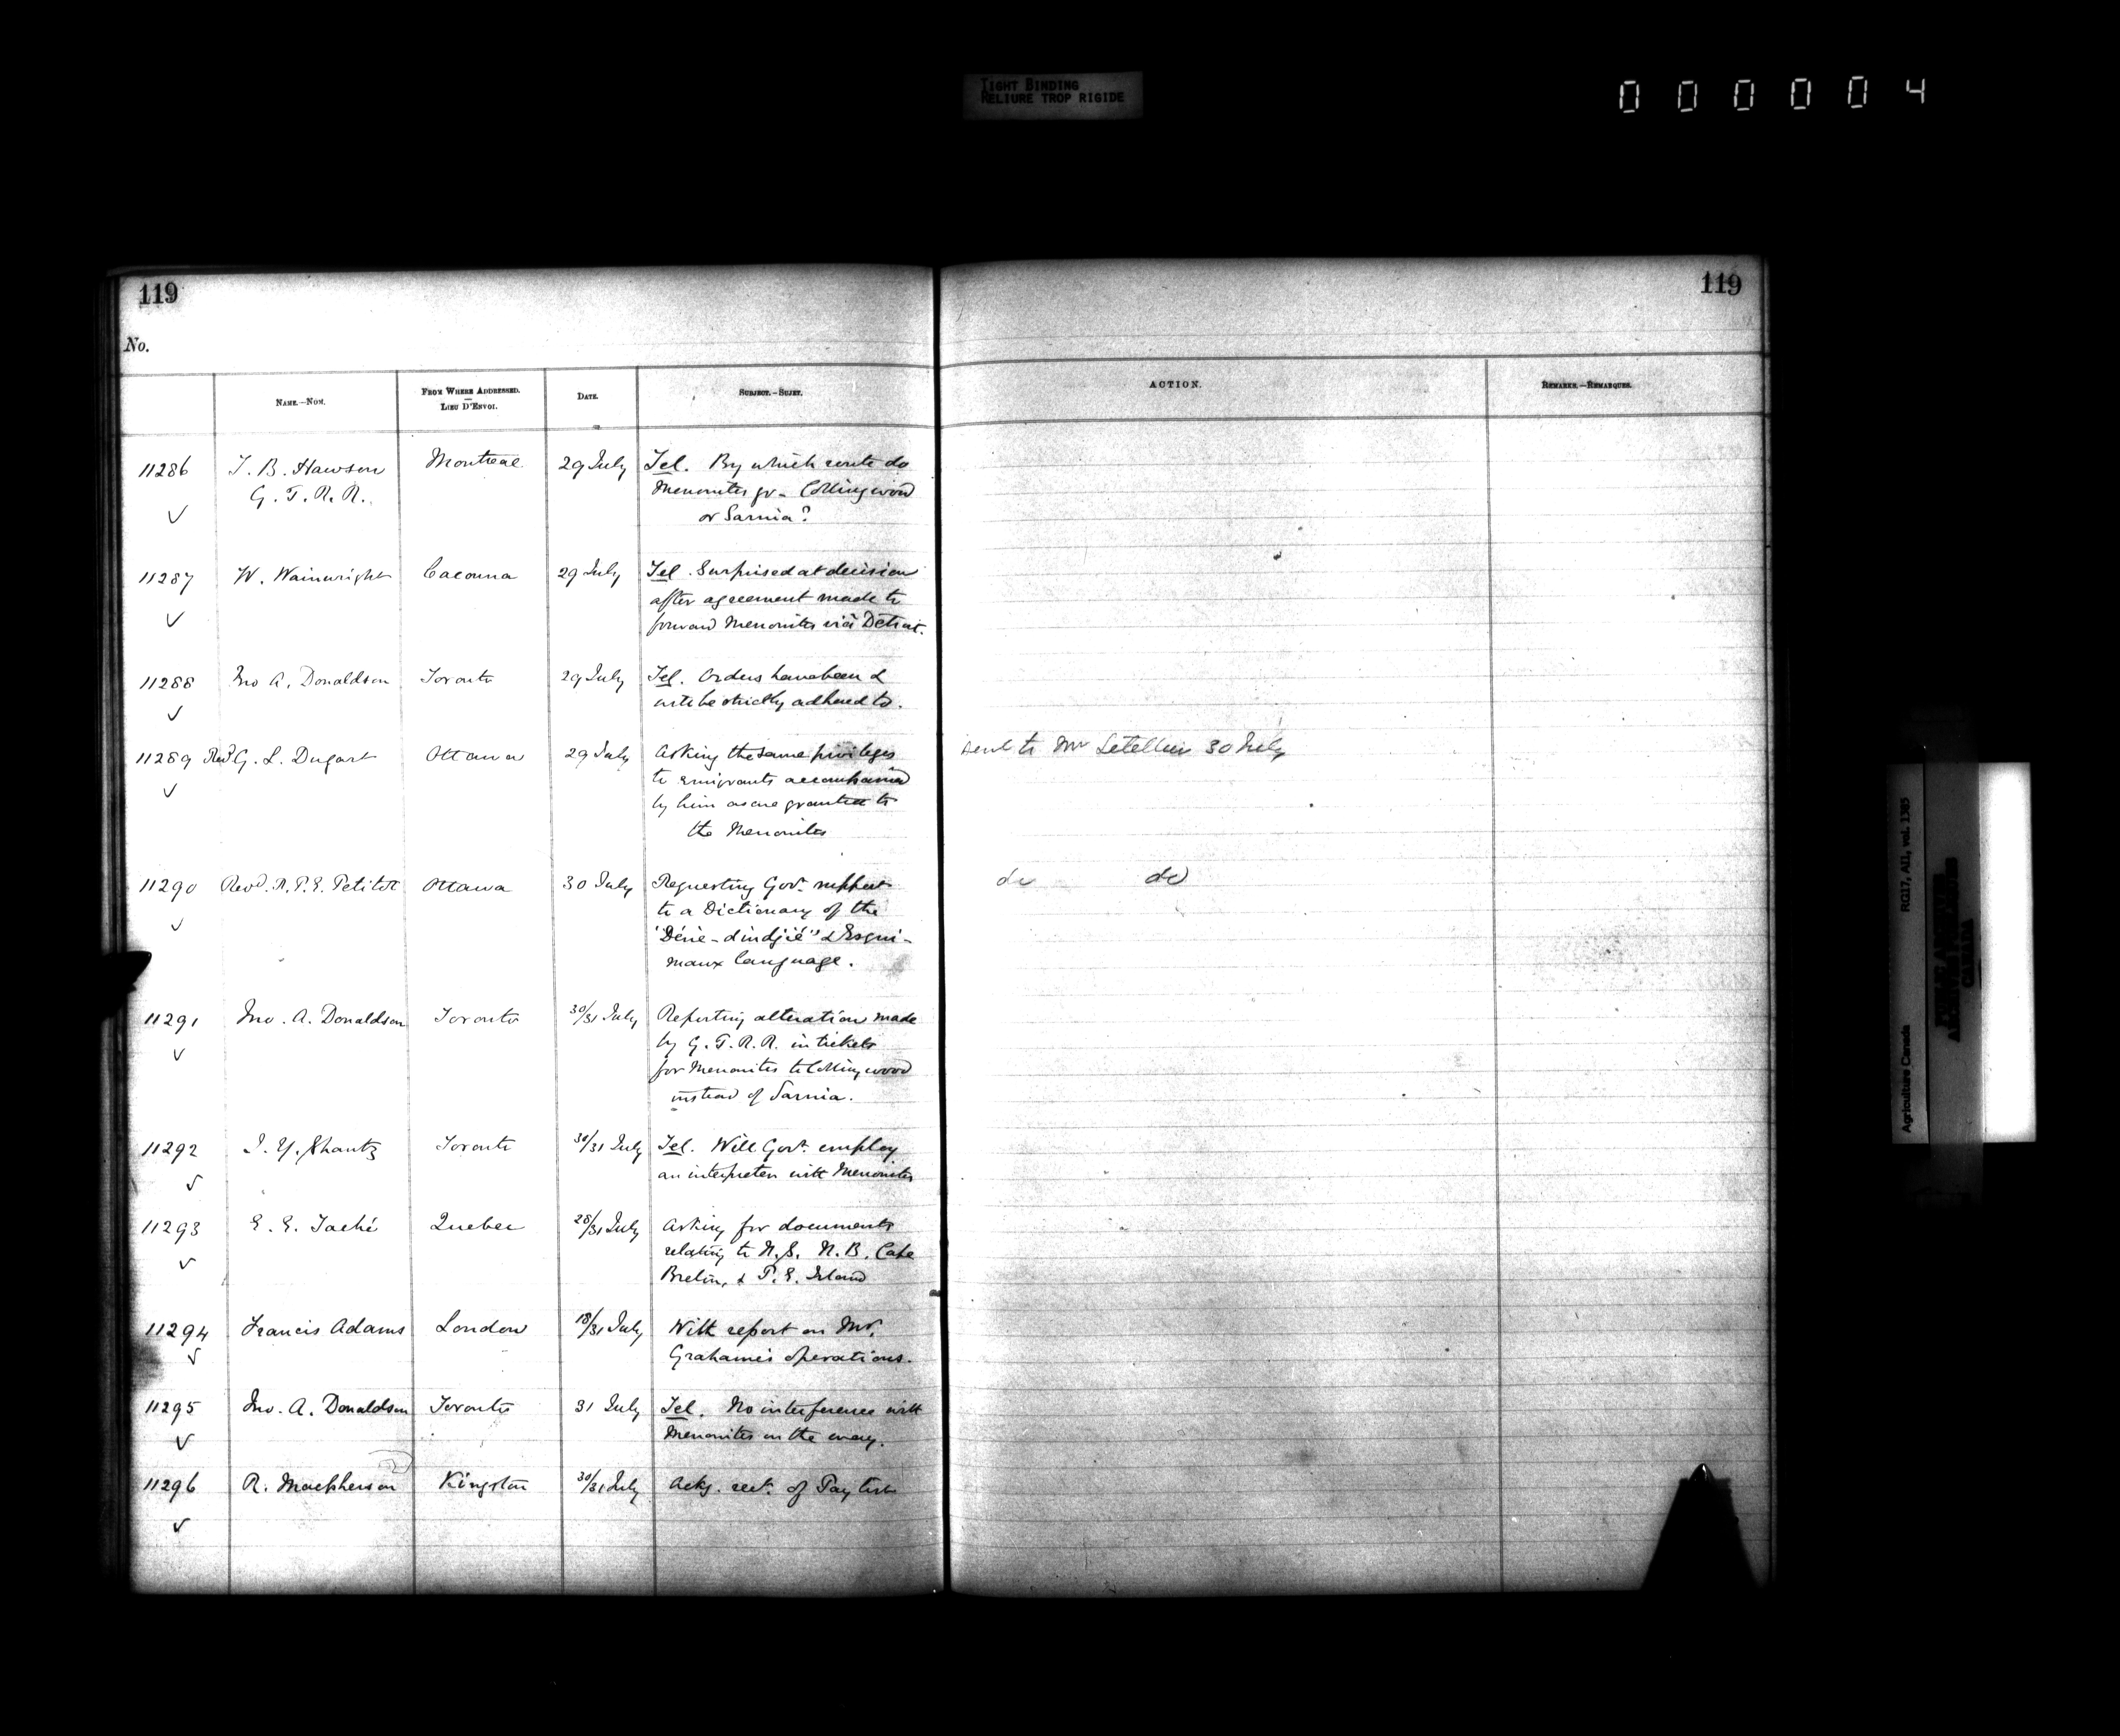 TIGHT BINDING
RELIURE TROP RIGIDE
000004
119
119
No.
NAME.—NOM.
FROM WHERE ADDRESSED.
LIEU D'ENVOI.
DATE.
SUBJECT.—SUJET.
ACTION.
REMARKS.—REMARQUES.
11286 T. B. Hawson Montreal 29 July Tel. By which route do
G. T. R. R. Menonites go - Collingwood
✓ or Sarnia?
11287 W. Wainwright Cacouna 29 July Tel. Surprised at decision
✓ after agreement made to
forward Menonites viâ Detroit.
11288 Jno A. Donaldson Toronto 29 July Tel. Orders have been &
✓ will be strictly adhered to.
11289 Revd G. L. Dugast Ottawa 29 July Asking the same privileges sent to Mr Letellier 30 July
✓ to emigrants accompanied
by him as are granted to
the Menonites
11290 Revd. R. P. E. Petitot Ottawa 30 July Requesting Govt. support do do
✓ to a Dictionary of the
"Dénè-dindjié" & Esqui-
maux language.
11291 Jno. A. Donaldson Toronto 30/31 July Reporting alteration made
✓ by G. T. R. R. in tickets
for Menonites to Collingwood
instead of Sarnia.
11292 J. Y. Shantz Toronto 30/31 July Tel. Will Govt. employ
✓ an interpreter with Menonites
11293 E. E. Taché Quebec 28/31 July Asking for documents
✓ relating to N.S. N.B. Cape
Breton, & P. E. Island
11294 Francis Adams London 18/31 July With report on Mr.
✓ Grahame's operations.
11295 Jno. A. Donaldson Toronto 31 July Tel. No interference with
✓ Menonites on the way.
11296 R. Macpherson Kingston 30/31 July Ackg. rect. of Pay list
✓
Agriculture Canada RG17, AII, vol. 1385
PUBLIC ARCHIVES
ARCHIVES PUBLIQUES
CANADA